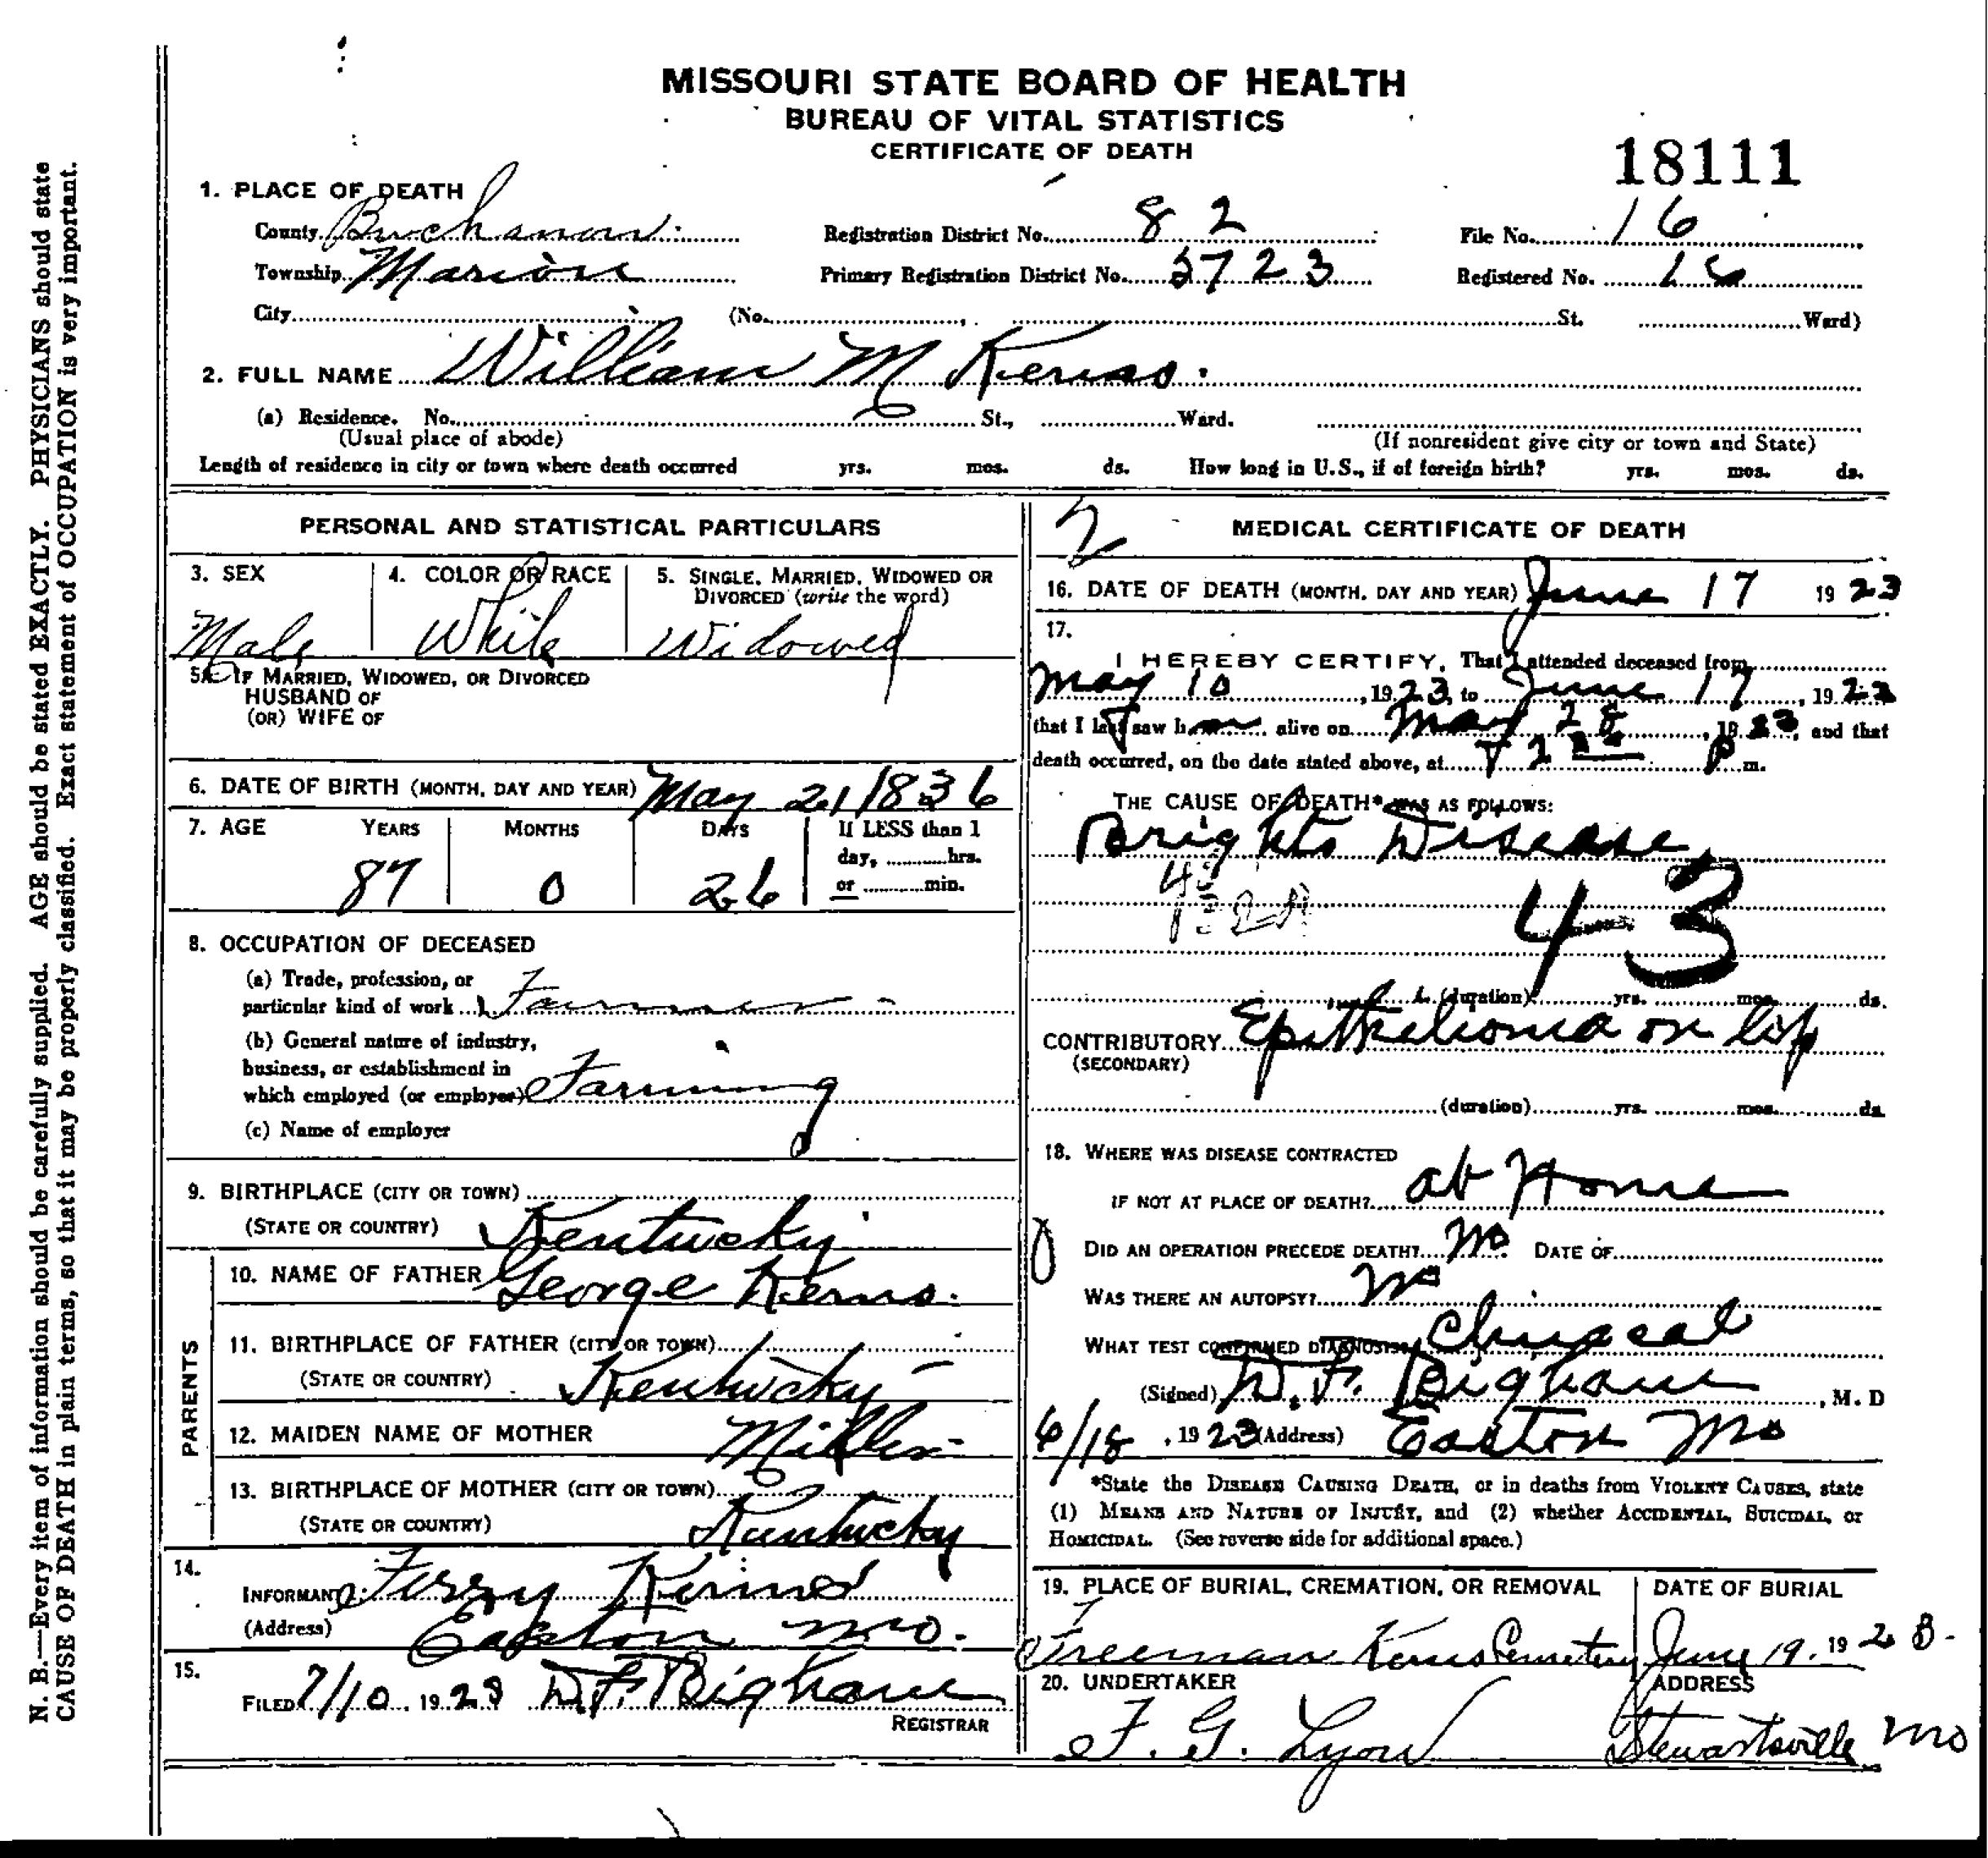 MISSOURI STATE BOARD OF HEALTH
BUREAU OF VITAL STATISTICS
CERTIFICATE OF DEATH
18111
1. PLACE OF DEATH
County Buchanan Registration District No. 82 File No. 16
Township Marion Primary Registration District No. 5723 Registered No. 16
City (No. , St. Ward)
2. FULL NAME William M Kerns.
(a) Residence. No. St., Ward.
(Usual place of abode) (If nonresident give city or town and State)
Length of residence in city or town where death occurred yrs. mos. ds. How long in U.S., if of foreign birth? yrs. mos. ds.
PERSONAL AND STATISTICAL PARTICULARS
3. SEX 4. COLOR OR RACE 5. SINGLE, MARRIED, WIDOWED OR
DIVORCED (write the word)
Male White Widowed
5A. IF MARRIED, WIDOWED, OR DIVORCED
HUSBAND OF
(OR) WIFE OF
6. DATE OF BIRTH (MONTH, DAY AND YEAR) May 21 1836
7. AGE YEARS MONTHS DAYS If LESS than 1
day, hrs.
87 0 26 or min.
8. OCCUPATION OF DECEASED
(a) Trade, profession, or
particular kind of work Farmer
(b) General nature of industry,
business, or establishment in
which employed (or employer) Farming
(c) Name of employer
9. BIRTHPLACE (CITY OR TOWN)
(STATE OR COUNTRY) Kentucky
PARENTS
10. NAME OF FATHER George Kerns.
11. BIRTHPLACE OF FATHER (CITY OR TOWN)
(STATE OR COUNTRY) Kentucky
12. MAIDEN NAME OF MOTHER Miller
13. BIRTHPLACE OF MOTHER (CITY OR TOWN)
(STATE OR COUNTRY) Kentucky
14.
INFORMANT Kerns
(Address) Easton Mo.
15.
FILED 7/10, 1923 D.F. Bigham
REGISTRAR
2
MEDICAL CERTIFICATE OF DEATH
16. DATE OF DEATH (MONTH, DAY AND YEAR) June 17 1923
17.
I HEREBY CERTIFY, That I attended deceased from
May 10, 1923, to June 17, 1923
that I last saw him alive on May 28, 1923, and that
death occurred, on the date stated above, at m.
THE CAUSE OF DEATH* WAS AS FOLLOWS:
Brights Disease
43
(duration) yrs. mos. ds.
CONTRIBUTORY Epithelioma on lip
(SECONDARY)
(duration) yrs. mos. ds.
18. WHERE WAS DISEASE CONTRACTED
IF NOT AT PLACE OF DEATH? at Home
DID AN OPERATION PRECEDE DEATH? No. DATE OF
WAS THERE AN AUTOPSY? No
WHAT TEST CONFIRMED DIAGNOSIS? Clinical
(Signed) D.F. Bigham, M. D
6/18, 1923 (Address) Easton Mo
*State the DISEASE CAUSING DEATH, or in deaths from VIOLENT CAUSES, state
(1) MEANS AND NATURE OF INJURY, and (2) whether ACCIDENTAL, SUICIDAL, or
HOMICIDAL. (See reverse side for additional space.)
19. PLACE OF BURIAL, CREMATION, OR REMOVAL DATE OF BURIAL
Freeman Kerns Cemetery June 19. 1923
20. UNDERTAKER ADDRESS
F. G. Lyon Stewartsville Mo
N. B.—Every item of information should be carefully supplied. AGE should be stated EXACTLY. PHYSICIANS should state
CAUSE OF DEATH in plain terms, so that it may be properly classified. Exact statement of OCCUPATION is very important.